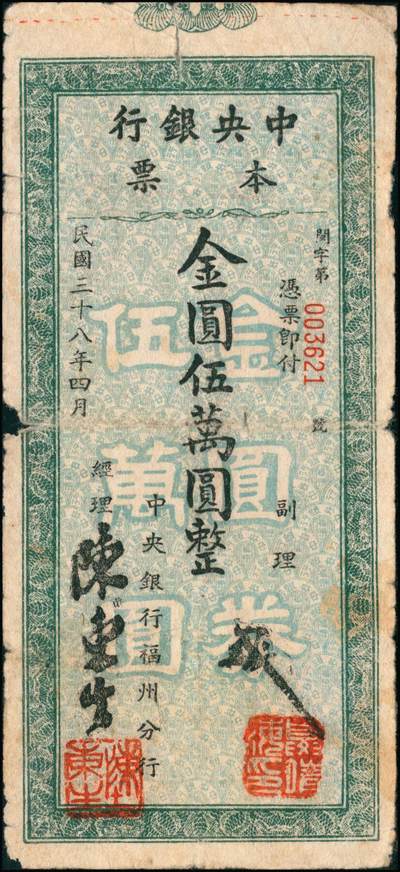 中央銀行
本票
閩字第003621號
憑票即付
金圓伍萬圓整
金圓券
伍萬圓
副理
中央銀行福州分行
經理
陳東生
民國三十八年四月
陳東生